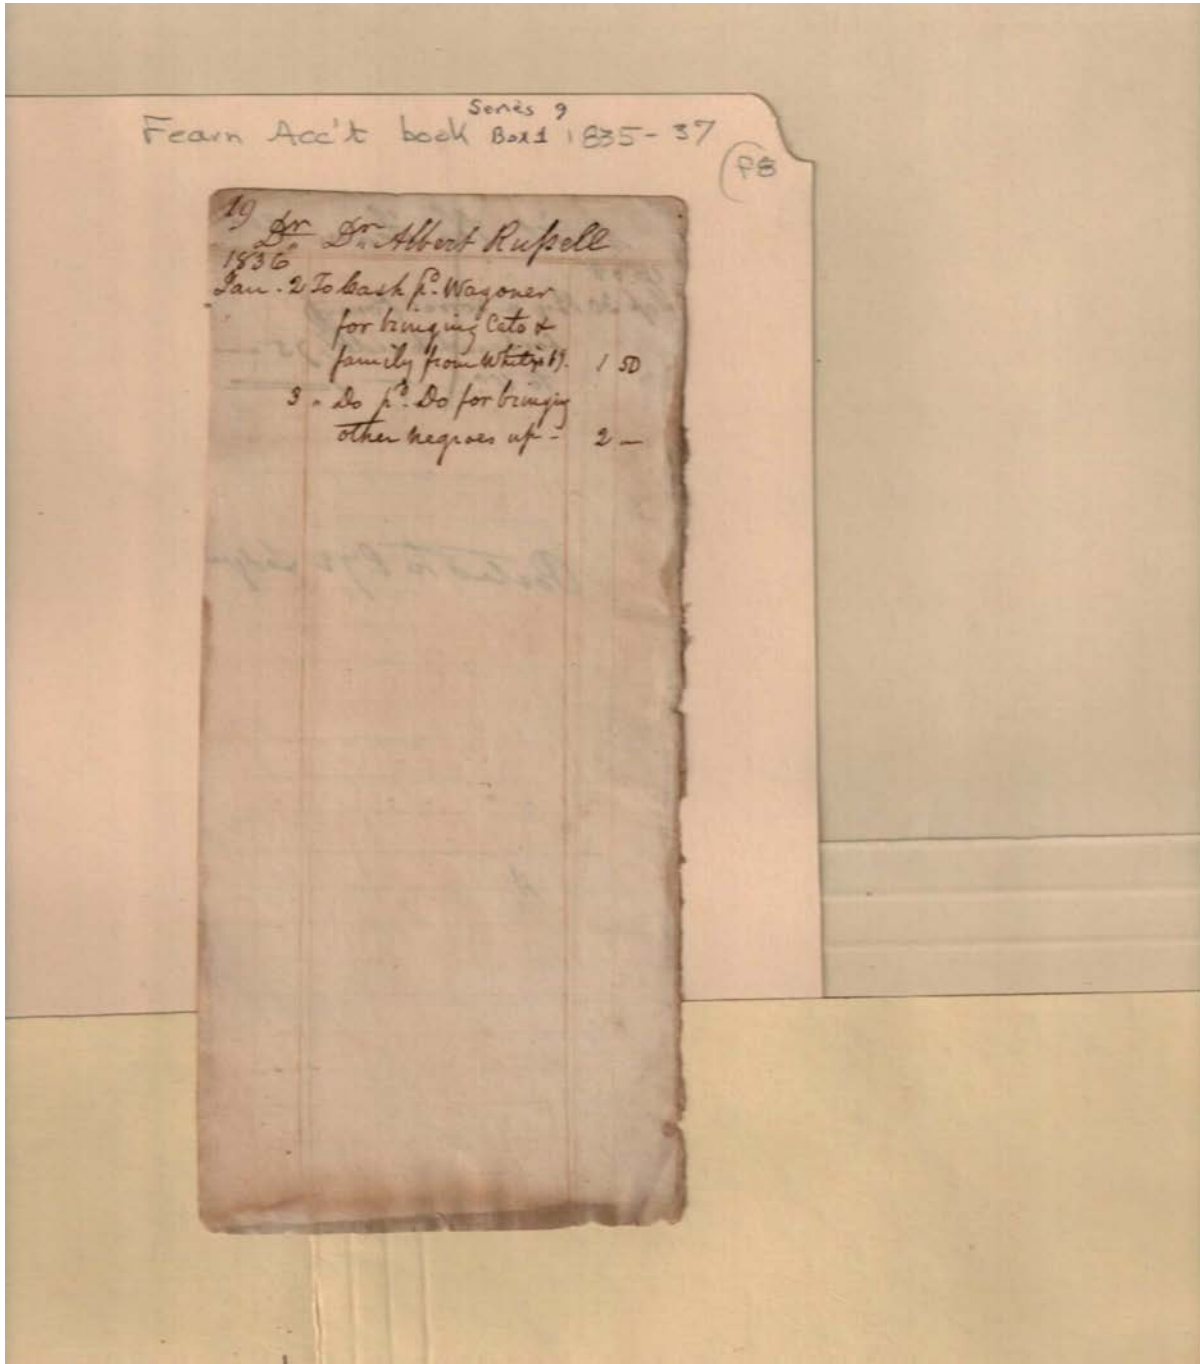 Series 9
Fearn Acc't book Box 1 1835-37
P8
19
Dr Dr. Albert Russell
1836
Jan. 2 To Cash pd. Wagoner
for bringing Cato &
family from 1 50
3 " Do pd. Do for bringing
other negroes up - 2 —